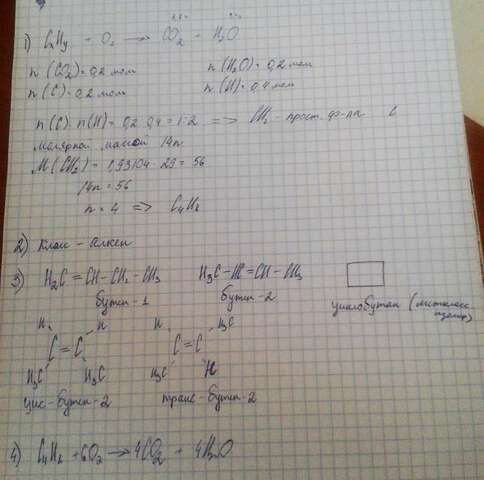 1) CxHy + O2 → CO2 + H2O
n (CO2) = 0,2 моль n (H2O) = 0,2 моль
n (C) = 0,2 моль n (H) = 0,4 моль
n (C) : n (H) = 0,2 : 0,4 = 1:2 => CH2 - прост. ф-ла с
молярной массой 14n
M (CH2) = 1,93104 · 29 = 56
14n = 56
n = 4 => C4H8
2) Класс - алкен
3) H2C = CH - CH2 - CH3 H3C - HC = CH - CH3
бутен-1 бутен-2 циклобутан (межкласс. изомер)
H H H H3C
C = C C = C
H3C H3C H3C H
цис-бутен-2 транс-бутен-2
4) C4H8 + 6O2 → 4CO2 + 4H2O